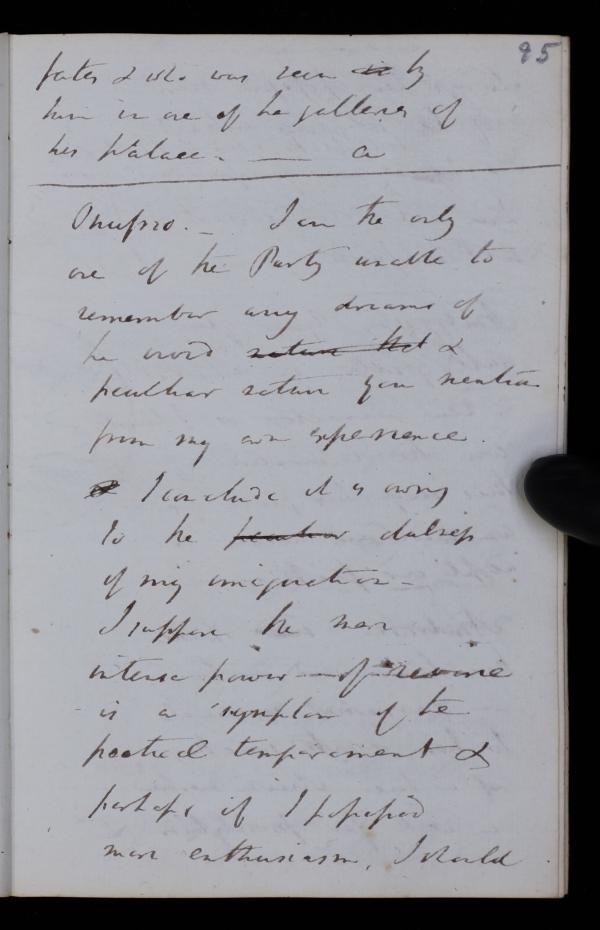 95
fates & who was seen in by
him in one of the galleries of
his Palace. — a
Onuphrio. — I am the only
one of the Party unable to
remember any dreams of
the vivid nature that &
peculiar nature you mention
from my own experience.
I conclude it is owing
to the peculiar dulness
of my imagination –
I suppose the more
intense power of reverie
is a symptom of the
poetical temperament &
perhaps if I possessed
more enthusiasm, I should